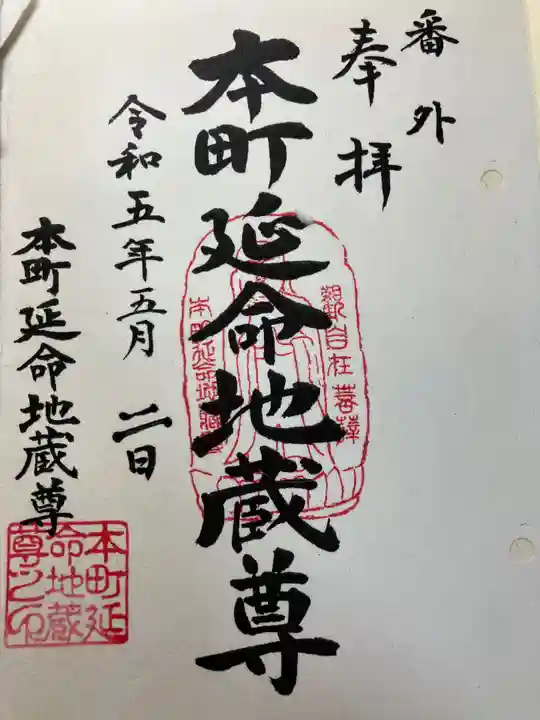 番外
奉拝
本町延命地蔵尊
観自在菩薩
本町延命地蔵尊
令和五年五月二日
本町延命地蔵尊
本町延
命地蔵
尊之印